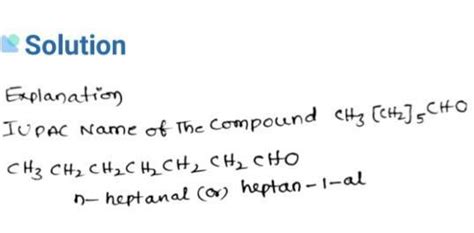 Solution
Explanation
IUPAC Name of The Compound CH3 [CH2]5 CHO
CH3 CH2 CH2 CH2 CH2 CH2 CHO
n- heptanal (or) heptan-1-al